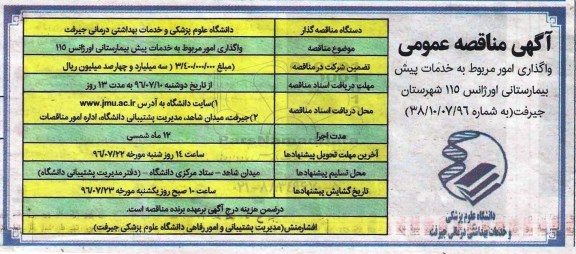 آگهی مناقصه عمومی
واگذاری امور مربوط به خدمات پیش
بیمارستانی اورژانس ۱۱۵ شهرستان
جیرفت(به شماره ۳۸/۱۰/۰۷/۹۶)
دانشگاه علوم پزشکی
و خدمات بهداشتی درمانی جیرفت
دستگاه مناقصه گذار
دانشگاه علوم پزشکی و خدمات بهداشتی درمانی جیرفت
موضوع مناقصه
واگذاری امور مربوط به خدمات پیش بیمارستانی اورژانس ۱۱۵
تضمین شرکت در مناقصه
(مبلغ ۳/۴۰۰/۰۰۰/۰۰۰ ( سه میلیارد و چهارصد میلیون ریال
مهلت دریافت اسناد مناقصه
از تاریخ دوشنبه ۹۶/۰۷/۱۰ به مدت ۱۳ روز
محل دریافت اسناد مناقصه
۱)سایت دانشگاه به آدرس www.jmu.ac.ir
۲)جیرفت، میدان شاهد، مدیریت پشتیبانی دانشگاه، اداره امور مناقصات
مدت اجرا
۱۲ ماه شمسی
آخرین مهلت تحویل پیشنهادها
ساعت ۱۴ روز شنبه مورخه ۹۶/۰۷/۲۲
محل تسلیم پیشنهادها
میدان شاهد - ستاد مرکزی دانشگاه - (دفتر مدیریت پشتیبانی دانشگاه)
تاریخ گشایش پیشنهادها
ساعت ۱۰ صبح روز یکشنبه مورخه ۹۶/۰۷/۲۳
درضمن هزینه درج آگهی برعهده برنده مناقصه است.
افشارمنش(مدیریت پشتیبانی و امور رفاهی دانشگاه علوم پزشکی جیرفت)